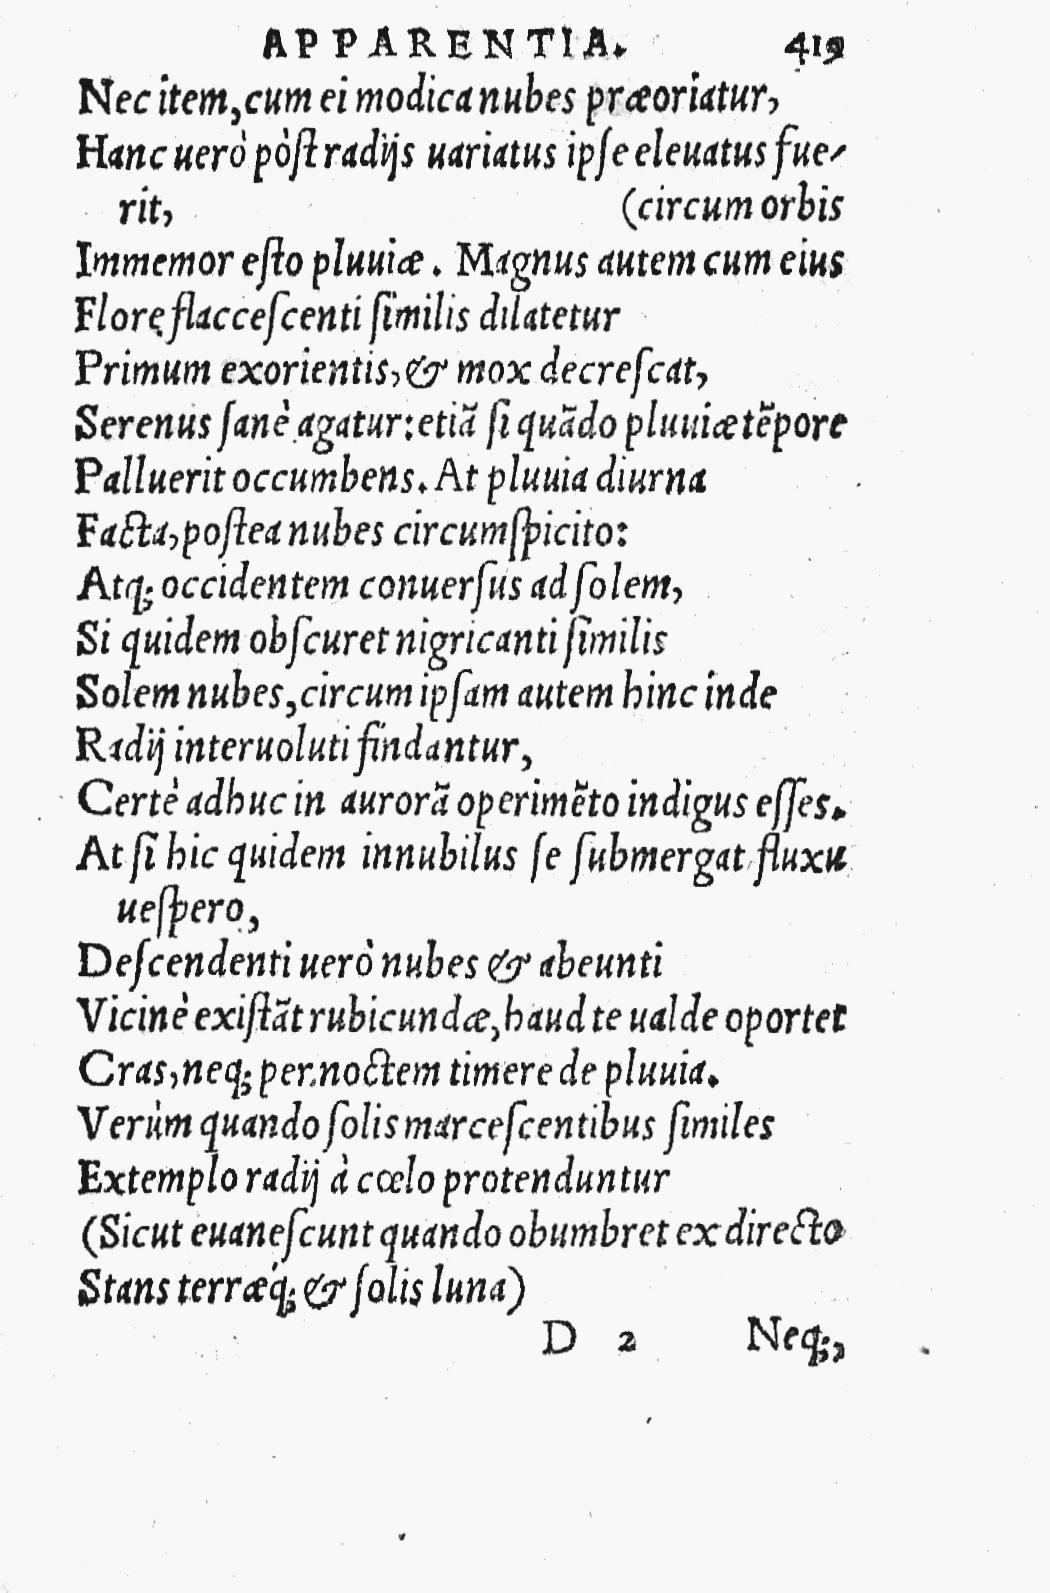 APPARENTIA. 419
Nec item, cum ei modica nubes præoriatur,
Hanc uerò pòſt radijs uariatus ipſe eleuatus fue-
rit, (circum orbis
Immemor eſto pluuiæ. Magnus autem cum eius
Florę flacceſcenti ſimilis dilatetur
Primum exorientis, & mox decreſcat,
Serenus ſanè agatur: etiã ſi quãdo pluuiæ tẽpore
Palluerit occumbens. At pluuia diurna
Facta, poſtea nubes circumſpicito:
Atq; occidentem conuerſus ad ſolem,
Si quidem obſcuret nigricanti ſimilis
Solem nubes, circum ipſam autem hinc inde
Radij interuoluti findantur,
Certè adhuc in aurorã operimẽto indigus eſſes.
At ſi hic quidem innubilus ſe ſubmergat fluxu
ueſpero,
Deſcendenti uerò nubes & abeunti
Vicinè exiſtãt rubicundæ, haud te ualde oportet
Cras, neq; per noctem timere de pluuia.
Verùm quando ſolis marceſcentibus ſimiles
Extemplo radij à cœlo protenduntur
(Sicut euaneſcunt quando obumbret ex directo
Stans terræq́; & ſolis luna)
D 2 Neq;,